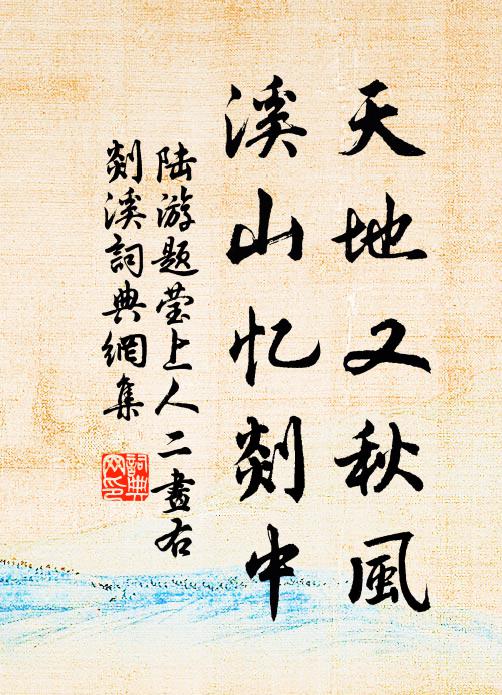 天地又秋風
溪山忆剡中
陆游题莹上人二畫右
剡溪詞典網集
詞典
网印